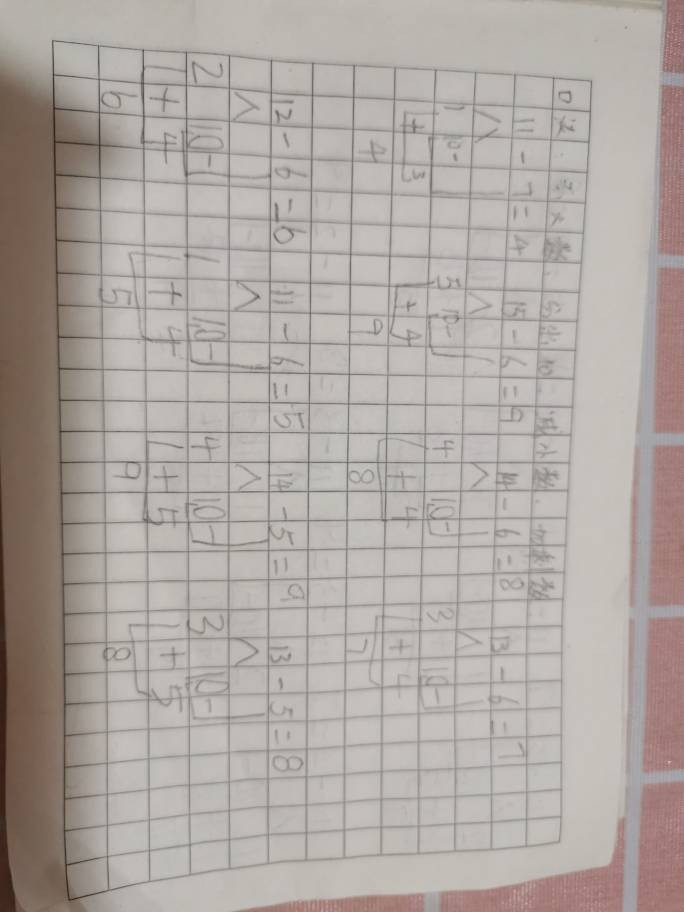 口诀: 大数. 分出10. 减小数. 加剩数.
11-7=4 15-6=9 14-6=8 13-6=7
1 10- 5 10- 4 10- 3 10-
+3 +4 +4 +4
4 9 8 7
12-6=6 11-6=5 14-5=9 13-5=8
2 10- 1 10- 4 10- 3 10-
+4 +4 +5 +5
6 5 9 8